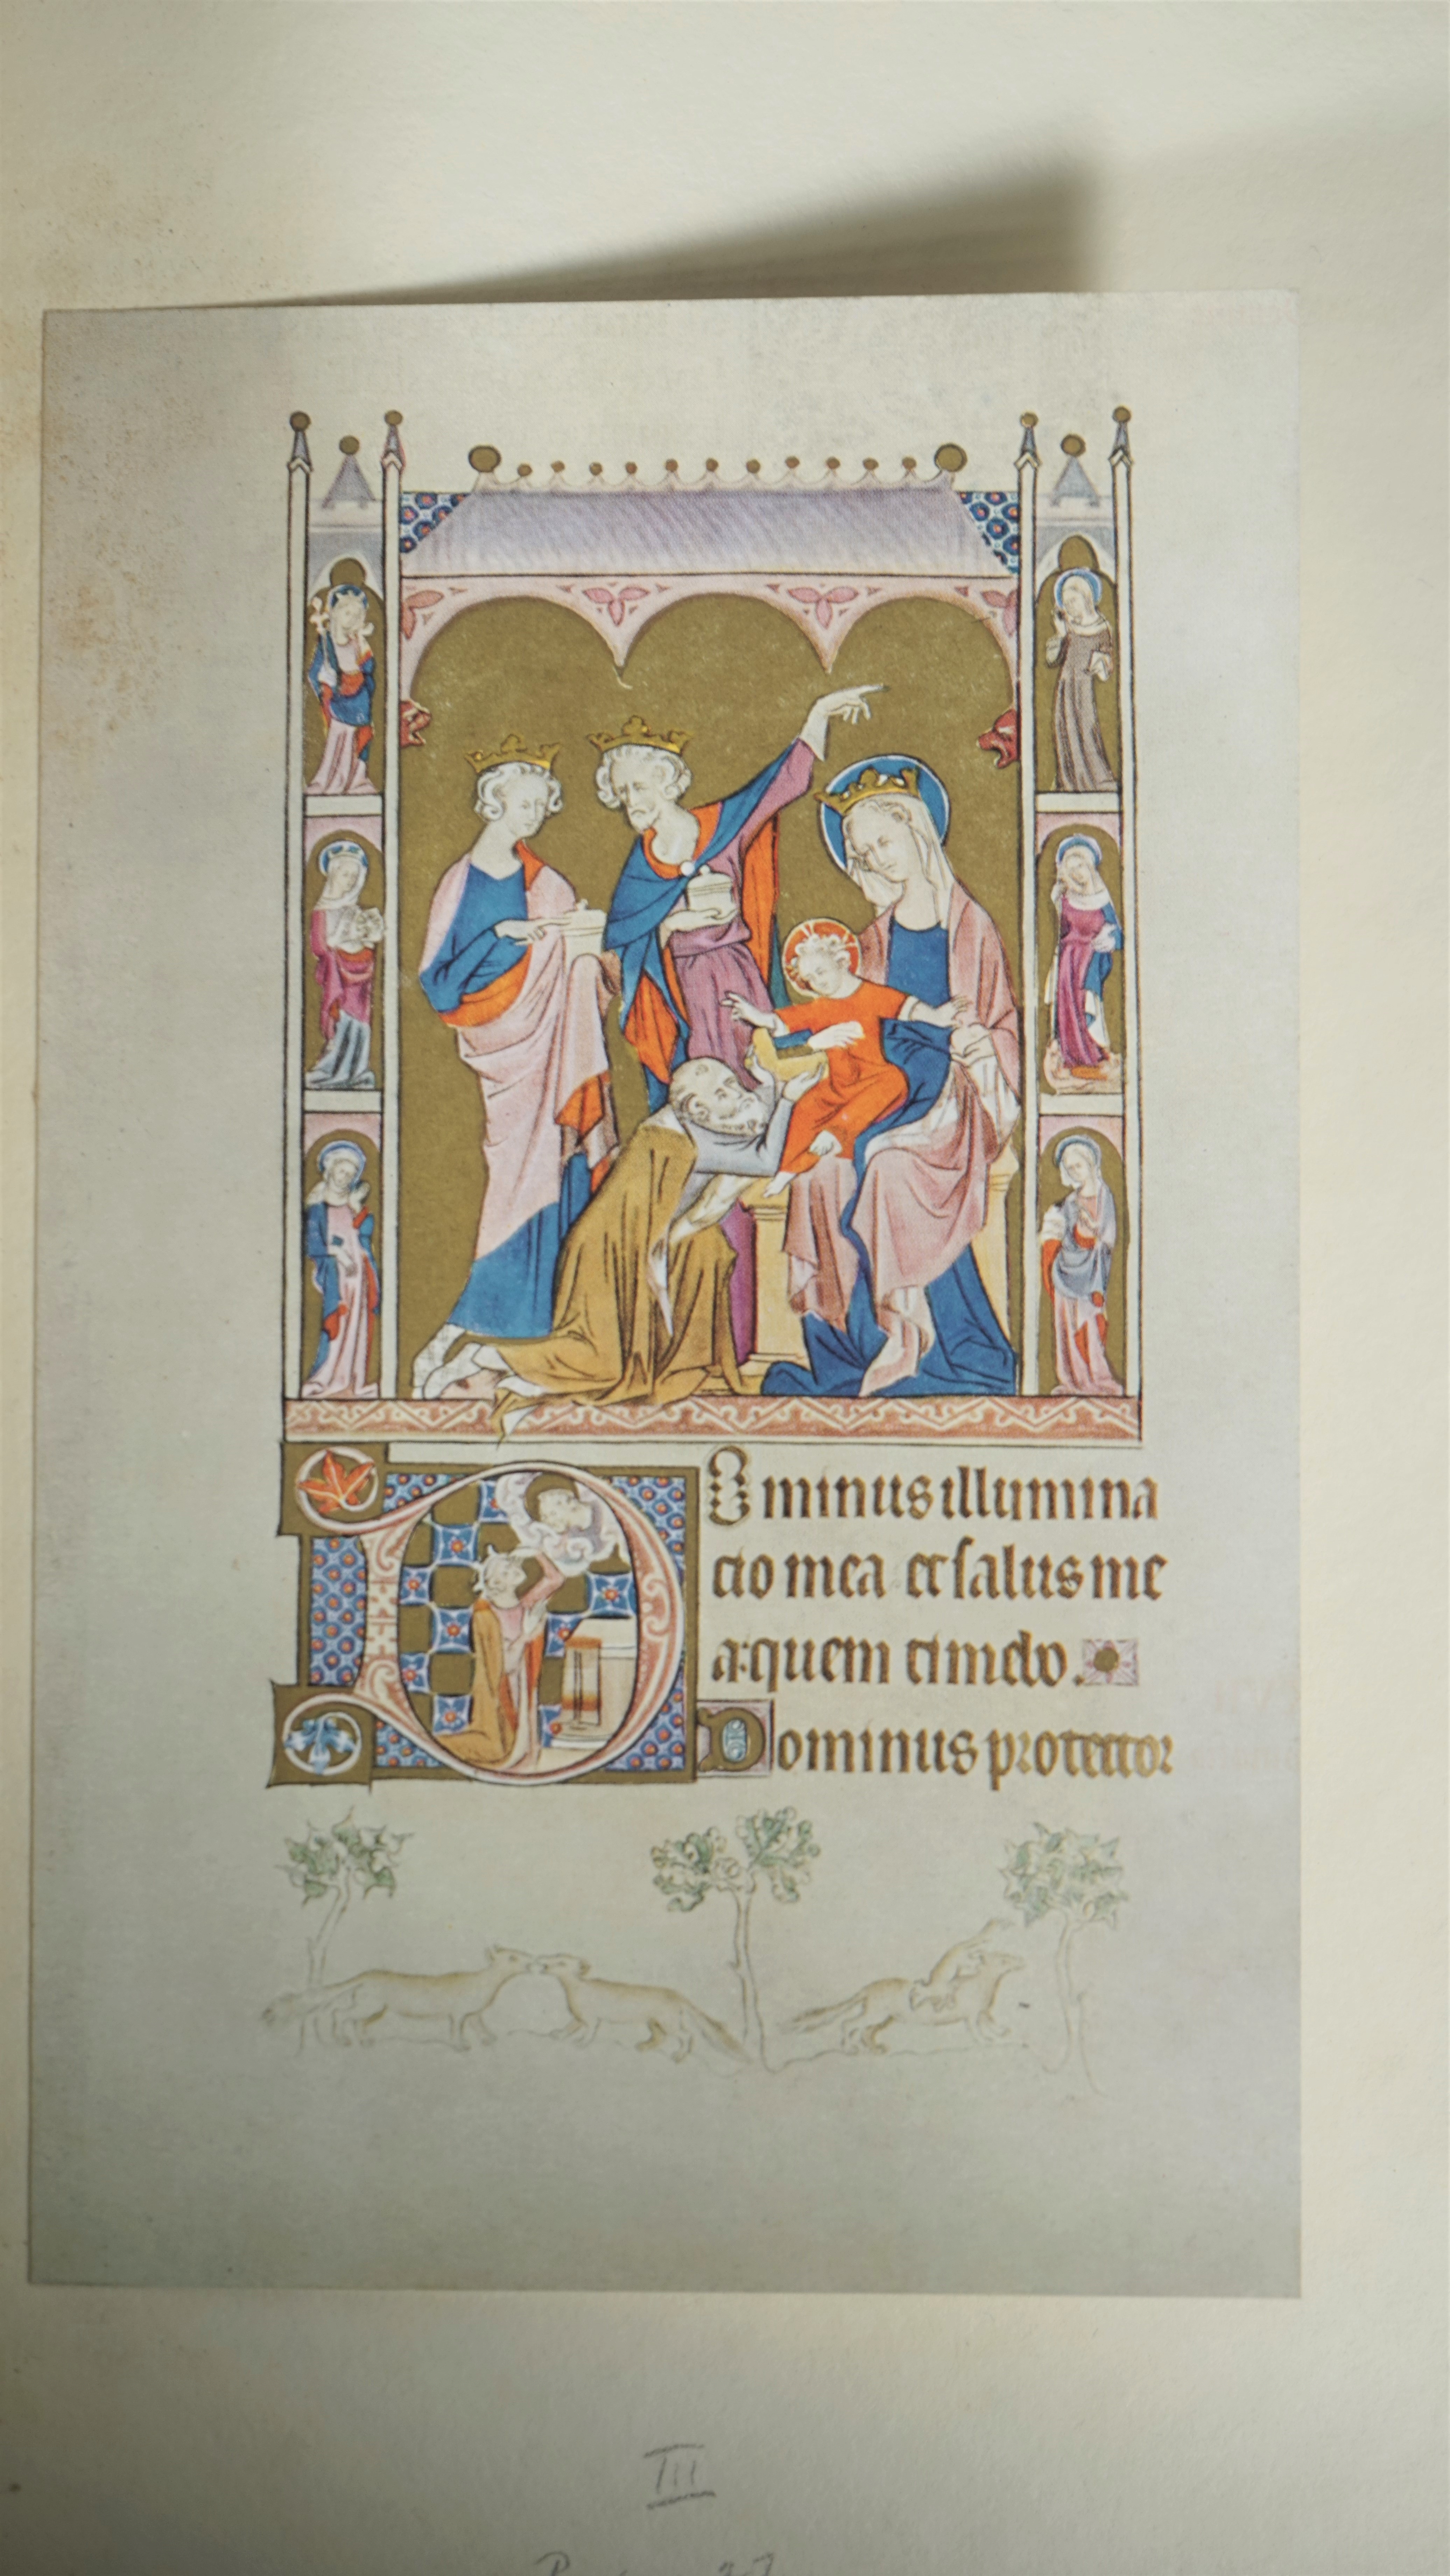 DOminus illumina
cio mea et salus me
a. quem timebo.
Dominus protector
III